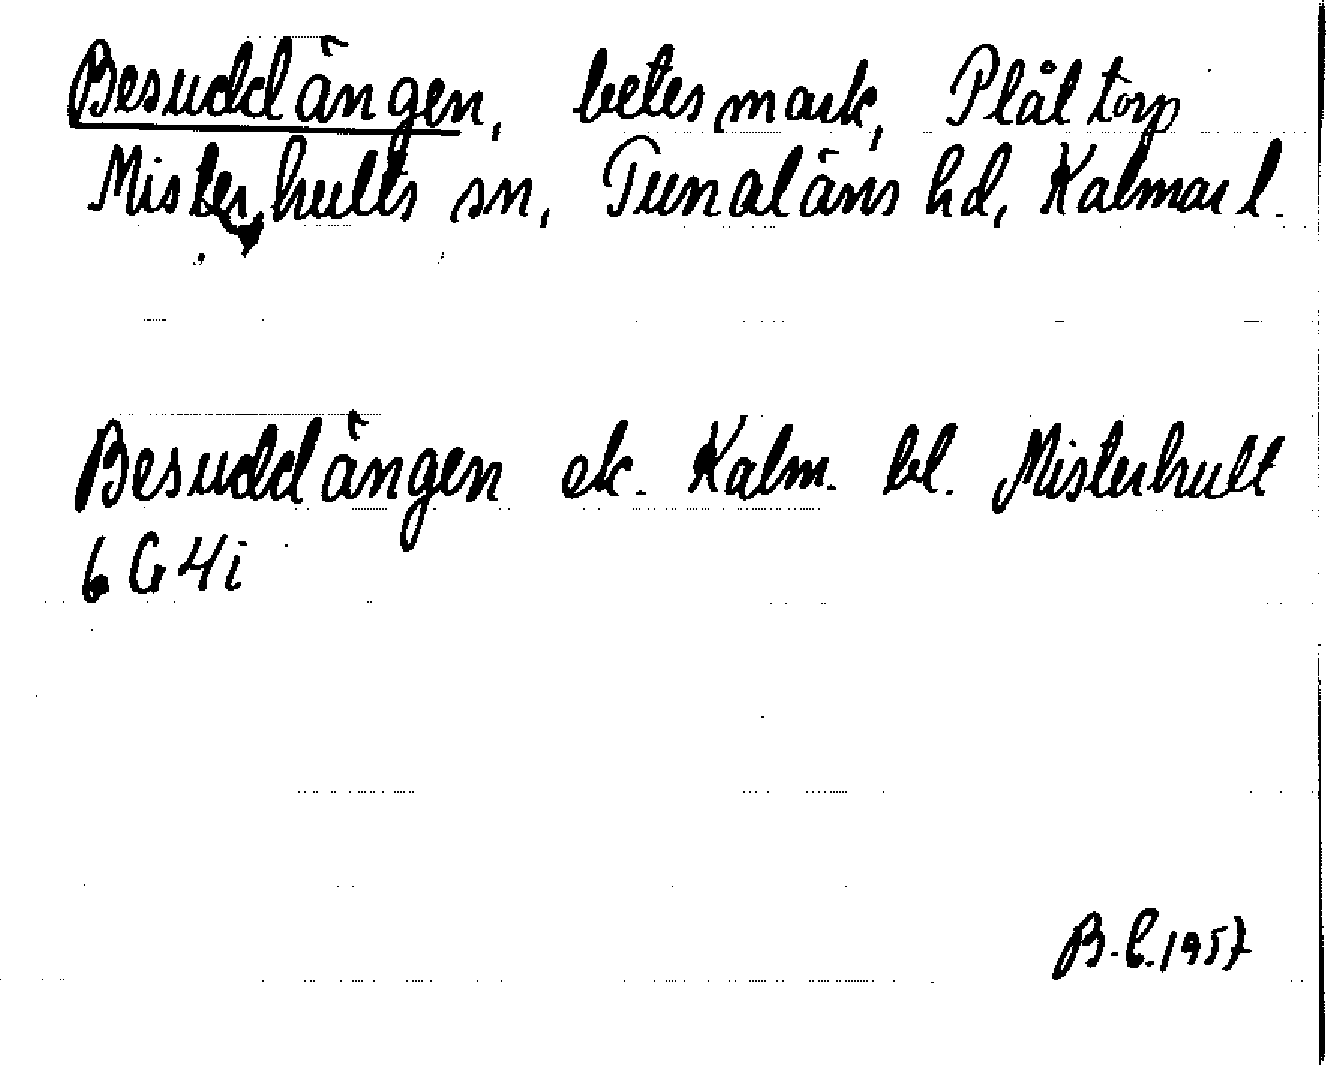 Besuddängen, betesmark, Plåltorp
Misterhults sn, Tunaläns hd, Kalmar l.
Besuddängen ek. Kalm. bl. Misterhult
6 G 4i
B.L.1957